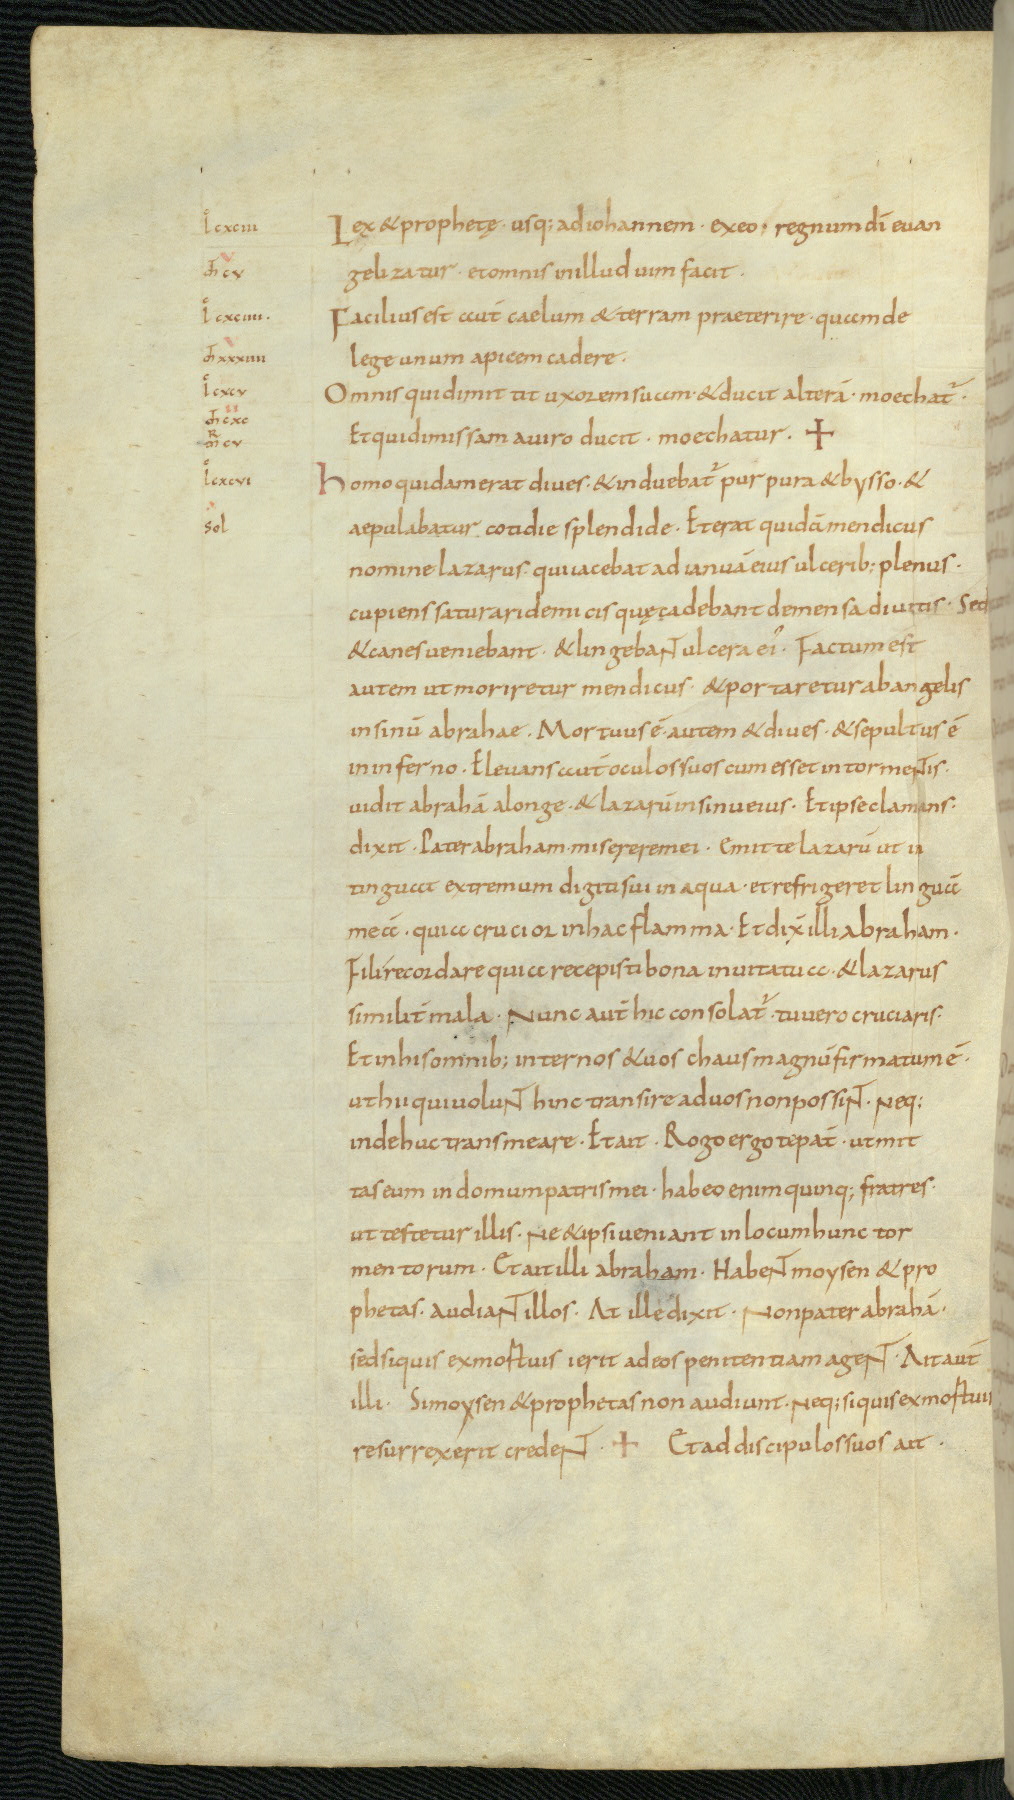 l cxciii
Lex & prophetę · usq; ad iohannem · exeo · regnum dī euan
m̄ cv
gelizatur · et omnis in illud uim facit ·
l cxciiii ·
Facilius est aut̄ caelum & terram praeterire · quam de
m̄ xxxiiii
lege unum apicem cadere ·
l cxcv
Omnis qui dimittit uxorem suam · & ducit alterā · moechat᷑ ·
m̄ cxc
m̄ cv
Et qui dimissam a uiro ducit · moechatur · ✝
l cxcvi
Homo quidam erat diues · & induebat᷑ purpura & bysso · &
sol
aepulabatur cotidie splendide · Et erat quidā mendicus
nomine lazarus · qui iacebat ad ianuā eius ulcerib; plenus ·
cupiens saturari de micis quę cadebant de mensa diuitis · Sed
& canes ueniebant · & lingebant ulcera ei᾽ · Factum est
autem ut moriretur mendicus · & portaretur ab angelis
in sinū abrahae · Mortuus ē autem & diues · & sepultus ē
in inferno · Eleuans aut̄ oculos suos cum esset in tormentis ·
uidit abrahā a longe · & lazarū in sinu eius · Et ipse clamans ·
dixit · Pater abraham · miserere mei · Emitte lazarū ut in
tinguat extremum digiti sui in aqua · et refrigeret linguā
meā · quia crucior in hac flamma · Et dix̄ illi abraham ·
Fili recordare quia recepisti bona in uita tua · & lazarus
similit̄ mala · Nunc aut̄ hic consolat᷑ · tu uero cruciaris ·
Et in his omnib; inter nos & uos chaus magnū firmatum ē ·
ut hii qui uolunt hinc transire ad uos non possint · Neq;
inde huc transmeare · Et ait · Rogo ergo te pat̄ · ut mit
tas eum in domum patris mei · habeo enim quinq; fratres ·
ut testetur illis · Ne & ipsi ueniant in locum hunc tor
mentorum · Et ait illi abraham · Habent moysen & pro
phetas · audiant illos · At ille dixit · Non pater abrahā ·
sed si quis ex mortuis ierit ad eos penitentiam agent · Ait aut̄
illi · Si moysen & prophetas non audiunt · Neq; si quis ex mortuis
resurrexerit credent · ✝ Et ad discipulos suos ait ·